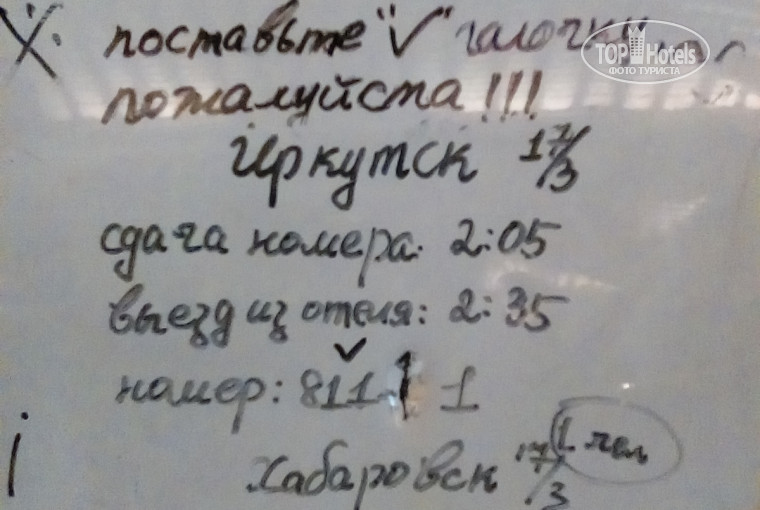 поставьте "✓" галочку
TOP Hotels
ФОТО ТУРИСТА
пожалуйста!!!
Иркутск 17/3
сдача номера: 2:05
выезд из отеля: 2:35
✓
номер: 811 1
1 чел
Хабаровск 17/3